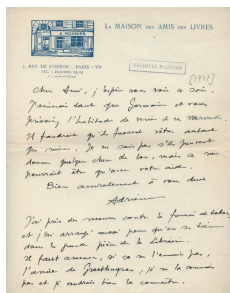 A. MONNIER
LA MAISON DES AMIS DES LIVRES
7, RUE DE L'ODÉON - PARIS - VIe
ARCHIVES PAULHAN
Cher Ami, j'espère vous voir ce soir.
J'aimerais tant que Germaine et vous
preniez l'habitude de venir à ces Mercredis.
Il faudrait qu'ils fussent vôtres autant
que miens. Je ne sais pas s'ils peuvent
donner quelque chose de bon, mais ce ne
pourrait être qu'avec votre aide.
Bien amicalement à vous deux
Adrienne
J'ai pris des mesures contre la fumée de tabac
et j'ai arrangé aussi pour qu'on se tienne
dans la grande pièce de la Librairie.
Il faut amener, si ça ne l'ennuie pas,
l'amie de Groethuysen, je ne la connais
pas et je voudrais bien la connaître.